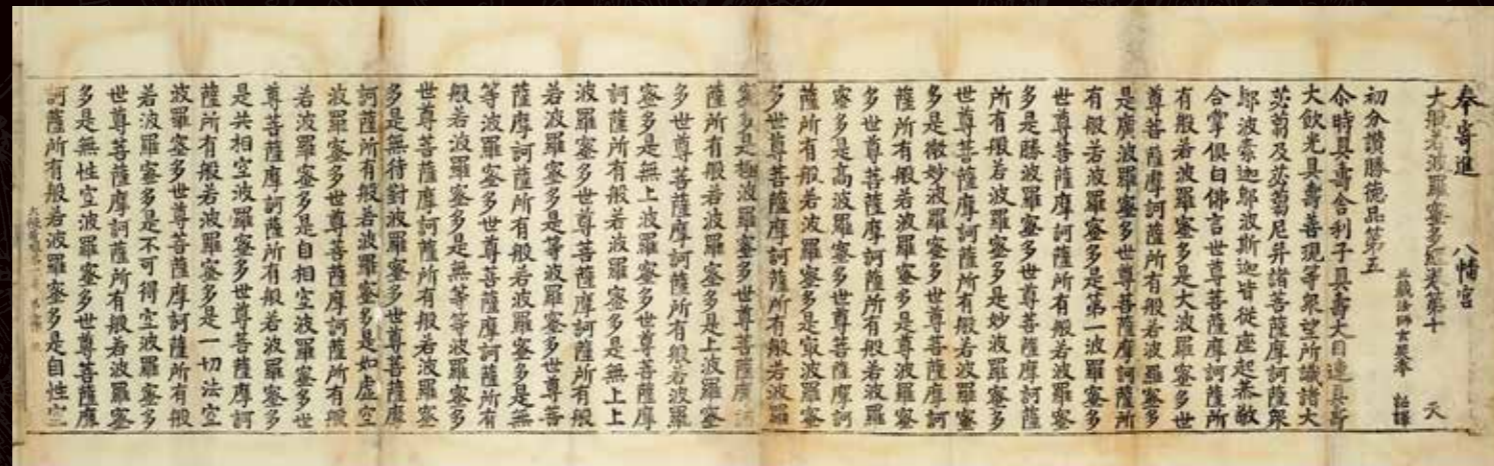 奉寄進 八幡宮
大般若波羅蜜多經卷第十 天
三藏法師玄奘奉 詔譯
初分讚勝德品第五
尒時具壽舍利子具壽大目連具壽
大飲光具壽善現等衆望所識諸大
苾芻及苾芻尼幷諸菩薩摩訶薩衆
鄔波索迦鄔波斯迦皆從座起恭敬
合掌俱白佛言世尊菩薩摩訶薩所
有般若波羅蜜多是大波羅蜜多世
尊菩薩摩訶薩所有般若波羅蜜多
是廣波羅蜜多世尊菩薩摩訶薩所
有般若波羅蜜多是第一波羅蜜多
世尊菩薩摩訶薩所有般若波羅蜜
多是勝波羅蜜多世尊菩薩摩訶薩
所有般若波羅蜜多是妙波羅蜜多
世尊菩薩摩訶薩所有般若波羅蜜
多是微妙波羅蜜多世尊菩薩摩訶
薩所有般若波羅蜜多是尊波羅蜜
多世尊菩薩摩訶薩所有般若波羅
蜜多是高波羅蜜多世尊菩薩摩訶
薩所有般若波羅蜜多是㝡波羅蜜
多世尊菩薩摩訶薩所有般若波羅
蜜多是極波羅蜜多世尊菩薩摩訶
薩所有般若波羅蜜多是上波羅蜜
多世尊菩薩摩訶薩所有般若波羅
蜜多是無上波羅蜜多世尊菩薩摩
訶薩所有般若波羅蜜多是無上上
波羅蜜多世尊菩薩摩訶薩所有般
若波羅蜜多是等波羅蜜多世尊菩
薩摩訶薩所有般若波羅蜜多是無
等波羅蜜多世尊菩薩摩訶薩所有
般若波羅蜜多是無等等波羅蜜多
世尊菩薩摩訶薩所有般若波羅蜜
多是無待對波羅蜜多世尊菩薩摩
訶薩所有般若波羅蜜多是如虛空
波羅蜜多世尊菩薩摩訶薩所有般
若波羅蜜多是自相空波羅蜜多世
尊菩薩摩訶薩所有般若波羅蜜多
是共相空波羅蜜多世尊菩薩摩訶
薩所有般若波羅蜜多是一切法空
波羅蜜多世尊菩薩摩訶薩所有般
若波羅蜜多是不可得空波羅蜜多
世尊菩薩摩訶薩所有般若波羅蜜
多是無性空波羅蜜多世尊菩薩摩
訶薩所有般若波羅蜜多是自性空